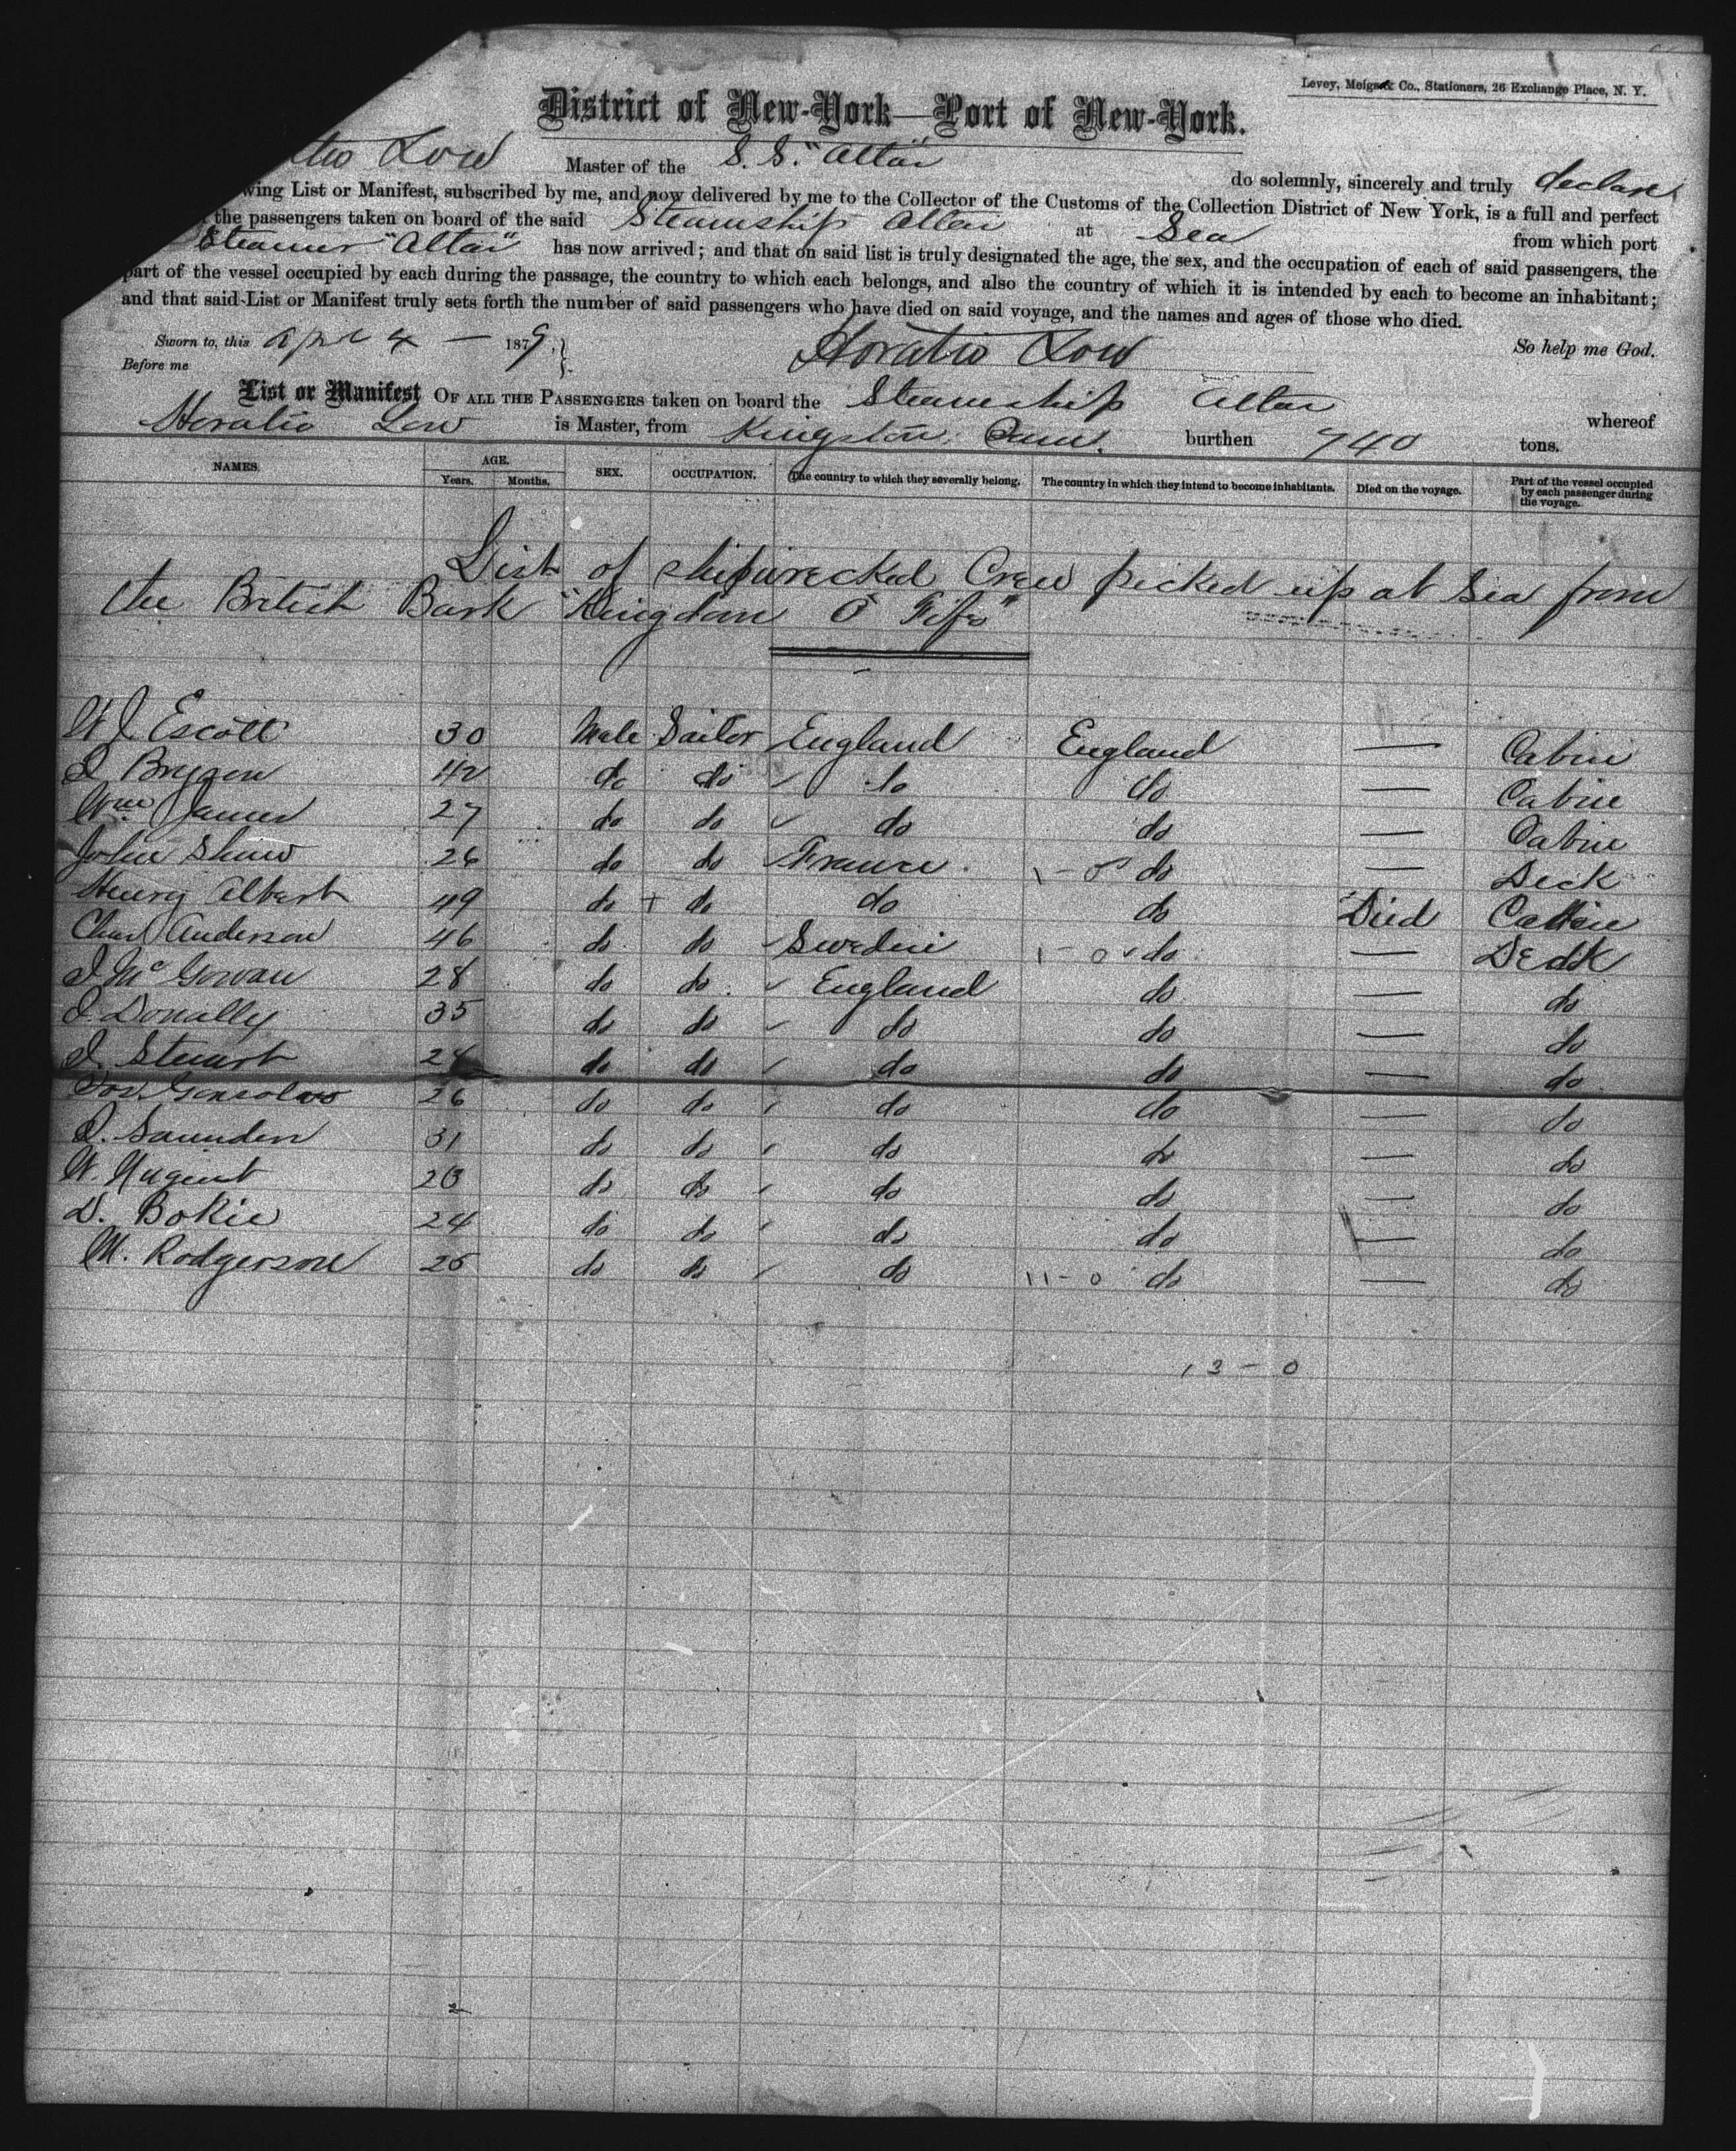 Levey, Meigs & Co., Stationers, 26 Exchange Place, N. Y.
District of New-York—Port of New-York.
tio Low Master of the S. S. "Altai" do solemnly, sincerely and truly declare
wing List or Manifest, subscribed by me, and now delivered by me to the Collector of the Customs of the Collection District of New York, is a full and perfect
the passengers taken on board of the said Steamship Altai at Sea from which port
Steamer "Altai" has now arrived; and that on said list is truly designated the age, the sex, and the occupation of each of said passengers, the
part of the vessel occupied by each during the passage, the country to which each belongs, and also the country of which it is intended by each to become an inhabitant;
and that said List or Manifest truly sets forth the number of said passengers who have died on said voyage, and the names and ages of those who died.
Sworn to, this Apr 4 — 1879, Horatio Low So help me God.
Before me
List or Manifest OF ALL THE PASSENGERS taken on board the Steamship Altai whereof
Horatio Low is Master, from Kingston burthen 740 tons.
NAMES. AGE. Years. Months. SEX. OCCUPATION. The country to which they severally belong. The country in which they intend to become inhabitants. Died on the voyage. Part of the vessel occupied by each passenger during the voyage.
List of shipwrecked Crew picked up at Sea from
the British Bark "Kingdom O Fife"
W J Escott 30 Male Sailor England England — Cabin
J Bryson 42 do do do do — Cabin
Wm James 27 do do do do — Cabin
John Shaw 26 do do France 1-0 do — Deck
Henry Albert 49 do + do do do Died Cabin
Chas Anderson 46 do do Sweden 1-0 do — Deck
J McGowan 28 do do England do — do
J Donally 35 do do do do — do
J. Stewart 24 do do do do — do
Jos. Gonsolves 26 do do do do — do
J. Saunders 31 do do do do — do
W. Nugent 23 do do do do — do
D. Bokie 24 do do do do — do
M. Rodgerson 25 do do do 11-0 do — do
13-0